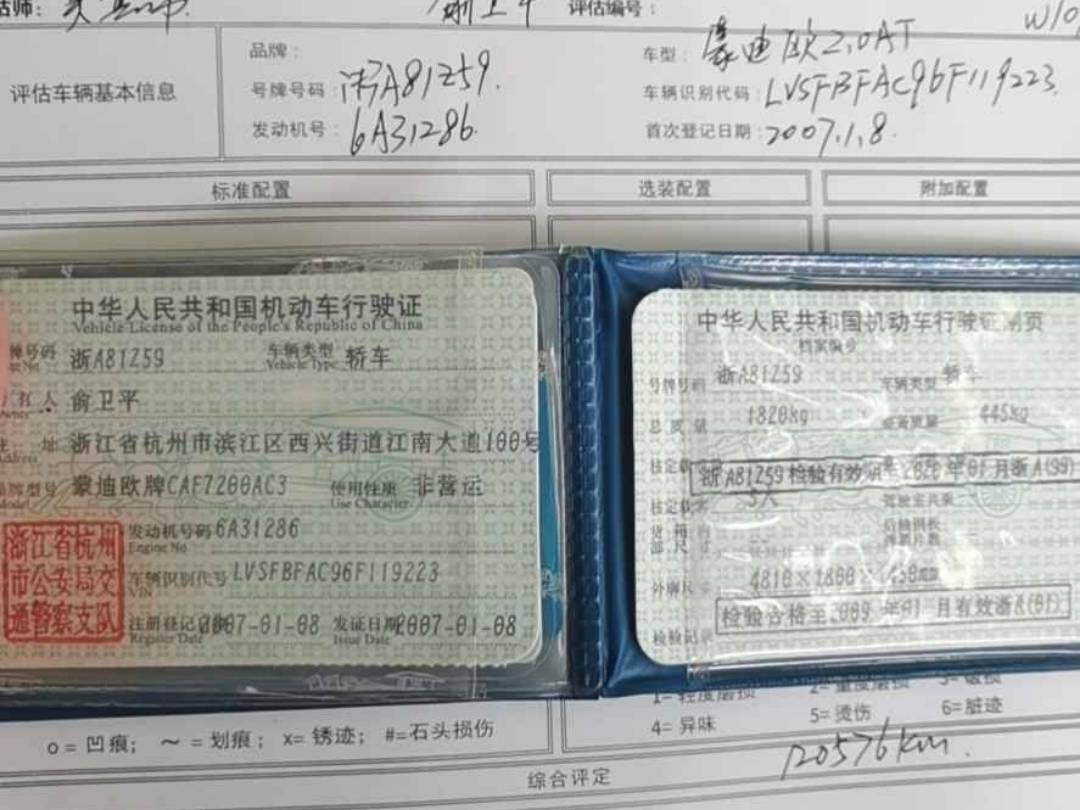 评估编号:
品牌: 车型: 蒙迪欧2.0AT
评估车辆基本信息
号牌号码: 浙A81259. 车辆识别代码: LVSFBFAC96F119223.
发动机号: 6A31286. 首次登记日期: 2007.1.8.
标准配置 选装配置 附加配置
中华人民共和国机动车行驶证
Vehicle License of the People's Republic of China
号码 浙A81Z59 车辆类型 轿车
Vehicle Type
有人 俞卫平
Owner
址 浙江省杭州市滨江区西兴街道江南大道100号
Address
品牌型号 蒙迪欧牌CAF7200AC3 使用性质 非营运
Model Use Character
浙江省杭州市公安局交通警察支队
发动机号码 6A31286
Engine No
车辆识别代号 LVSFBFAC96F119223
VIN
注册登记日期 2007-01-08 发证日期 2007-01-08
Register Date Issue Date
中华人民共和国机动车行驶证副页
档案编号
号牌号码 浙A81Z59 车辆类型 轿车
总质量 1820kg 445kg
浙A81Z59检验有效期至2020年01月浙A(99)
5人
驾驶室共乘
后轴钢板
弹簧片数
外廓尺寸 4810×1800×1450
检验合格至2009年01月有效浙A(01)
检验记录
1=轻度磨损 2=重度磨损 3=破损
4=异味 5=烫伤 6=脏迹
o=凹痕; ~=划痕; x=锈迹; #=石头损伤
120576km.
综合评定